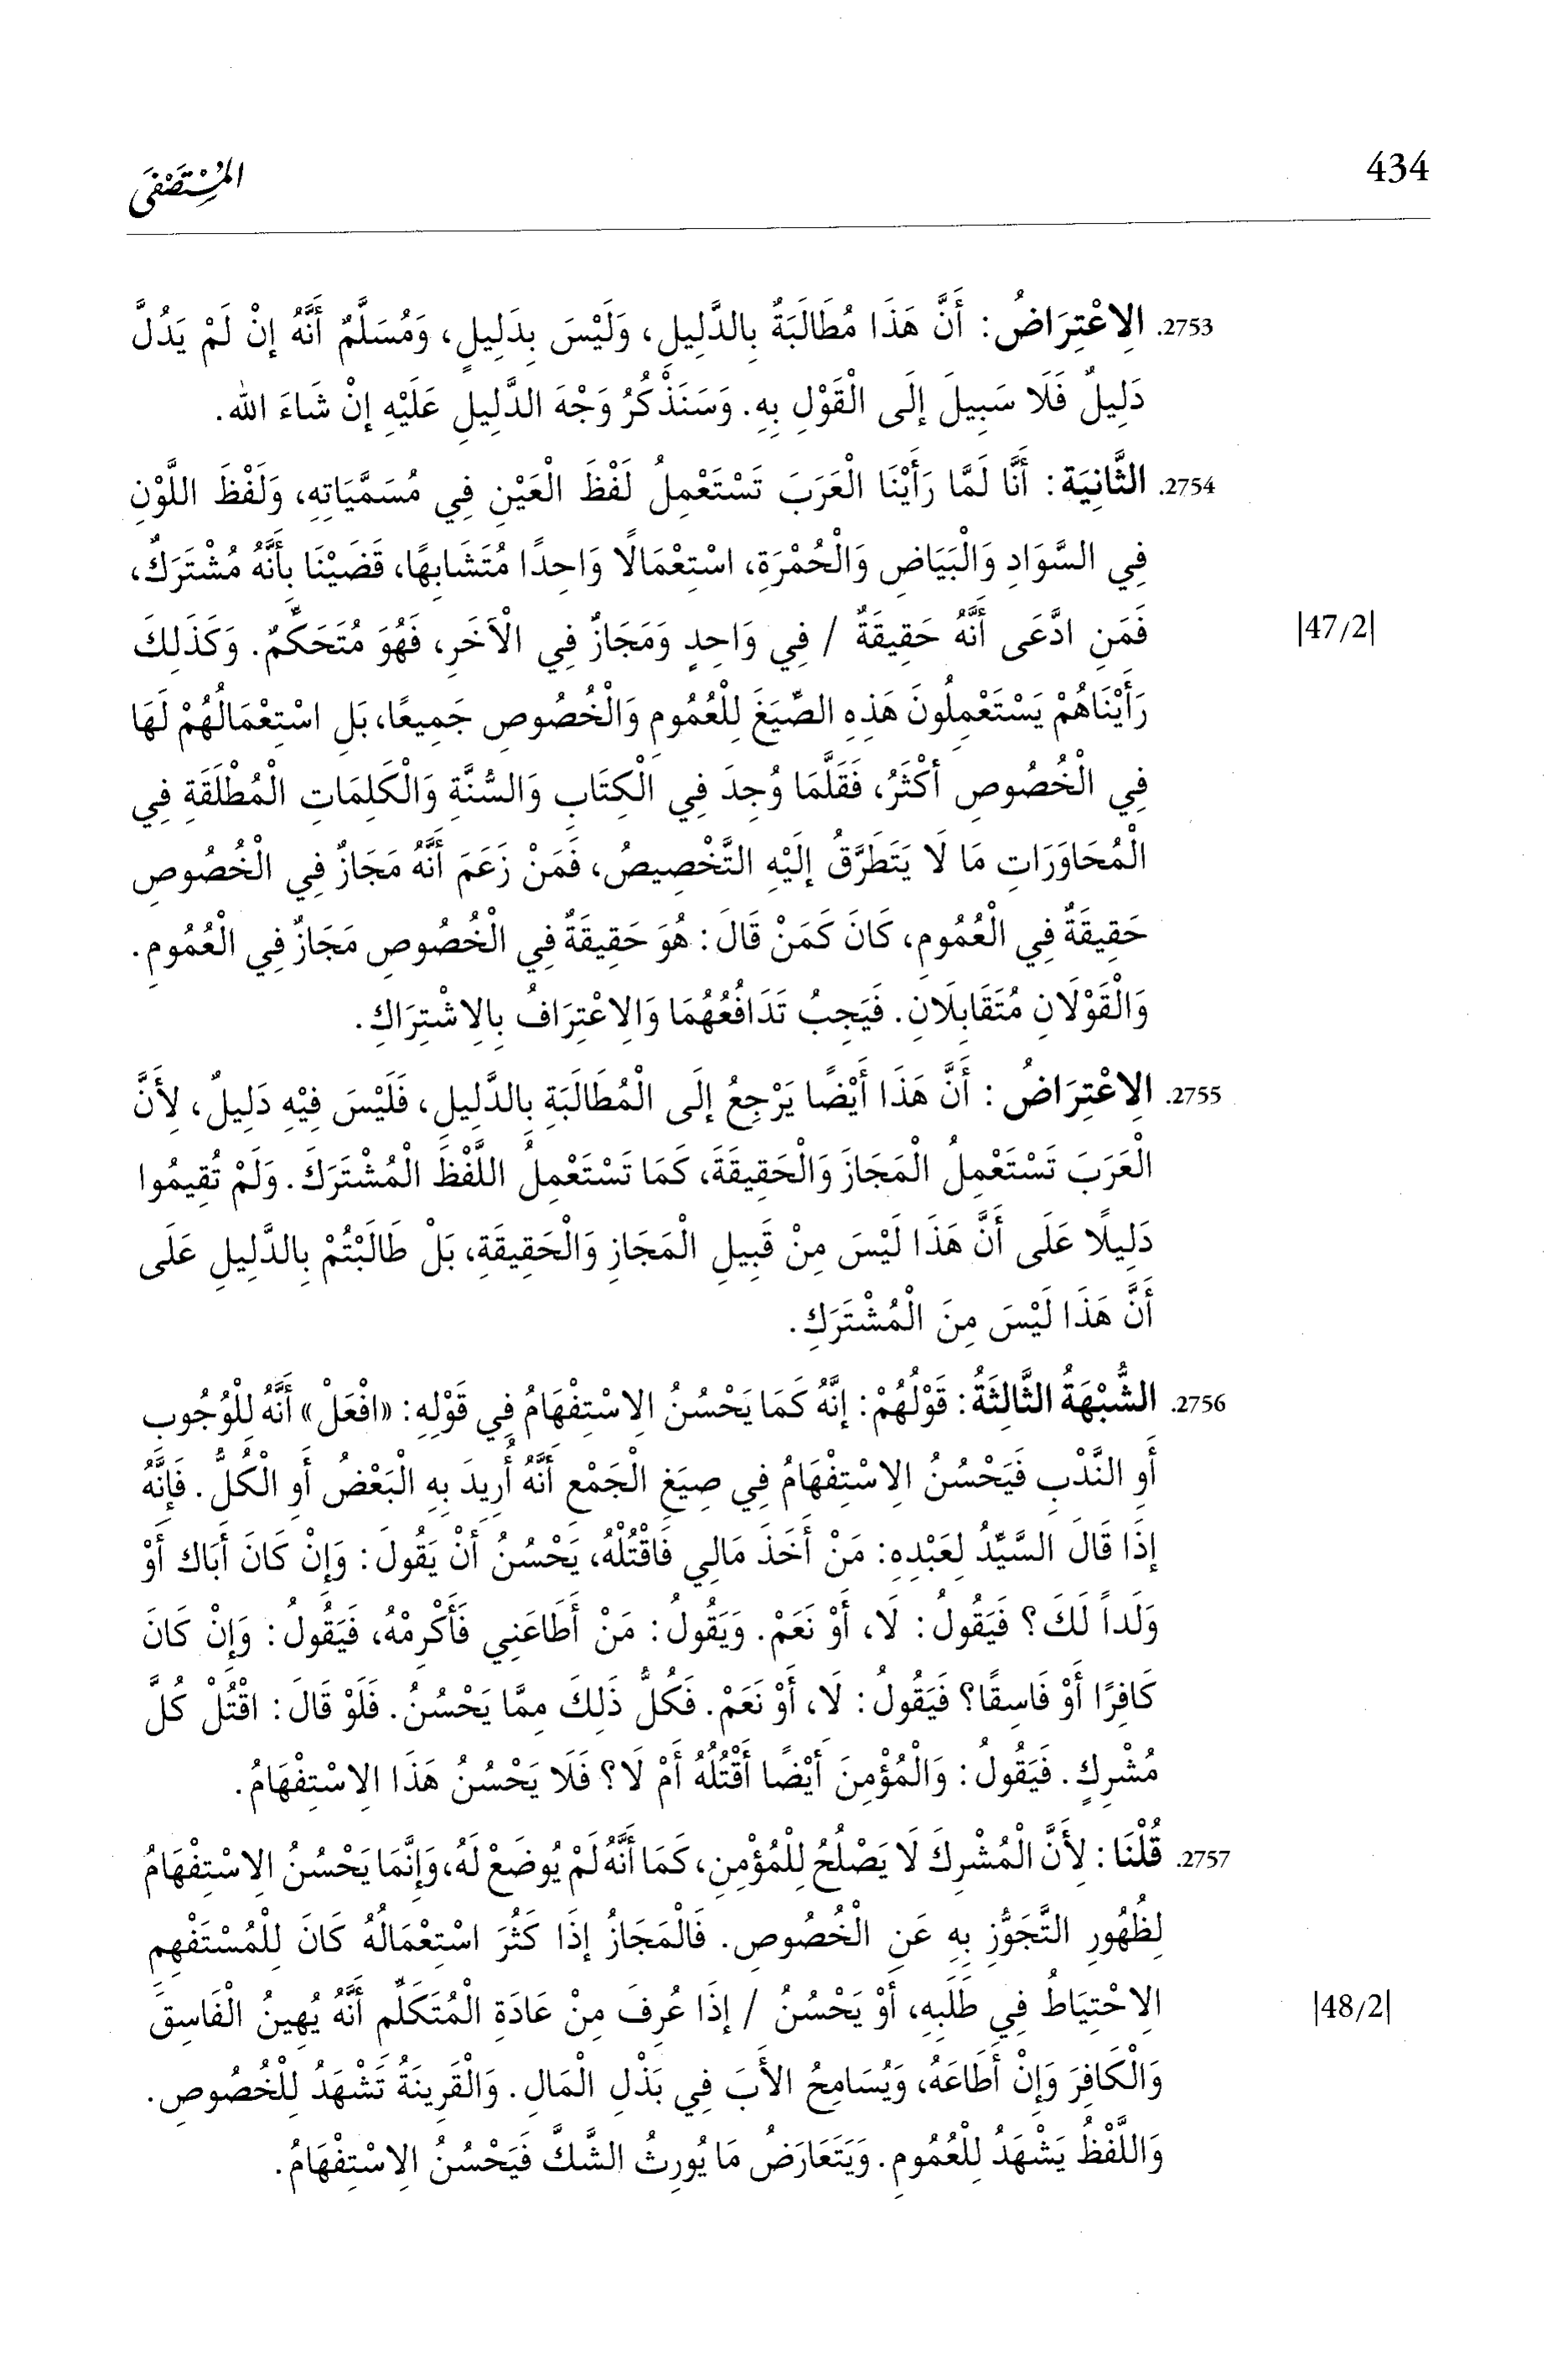 434
المُسْتَصْفَى
2753. الِاعْتِرَاضُ: أَنَّ هَذَا مُطَالَبَةٌ بِالدَّلِيلِ، وَلَيْسَ بِدَلِيلٍ، وَمُسَلَّمٌ أَنَّهُ إِنْ لَمْ يَدُلَّ
دَلِيلٌ فَلَا سَبِيلَ إِلَى الْقَوْلِ بِهِ. وَسَنَذْكُرُ وَجْهَ الدَّلِيلِ عَلَيْهِ إِنْ شَاءَ الله.
2754. الثَّانِيَة: أَنَّا لَمَّا رَأَيْنَا الْعَرَبَ تَسْتَعْمِلُ لَفْظَ الْعَيْنِ فِي مُسَمَّيَاتِهِ، وَلَفْظَ اللَّوْنِ
فِي السَّوَادِ وَالْبَيَاضِ وَالْحُمْرَةِ، اسْتِعْمَالًا وَاحِدًا مُتَشَابِهًا، قَضَيْنَا بِأَنَّهُ مُشْتَرَكٌ،
فَمَنِ ادَّعَى أَنَّهُ حَقِيقَةٌ / فِي وَاحِدٍ وَمَجَازٌ فِي الْآخَرِ، فَهُوَ مُتَحَكِّمٌ. وَكَذَلِكَ |47/2|
رَأَيْنَاهُمْ يَسْتَعْمِلُونَ هَذِهِ الصِّيَغَ لِلْعُمُومِ وَالْخُصُوصِ جَمِيعًا، بَلِ اسْتِعْمَالُهُمْ لَهَا
فِي الْخُصُوصِ أَكْثَرُ، فَقَلَّمَا وُجِدَ فِي الْكِتَابِ وَالسُّنَّةِ وَالْكَلِمَاتِ الْمُطْلَقَةِ فِي
الْمُحَاوَرَاتِ مَا لَا يَتَطَرَّقُ إِلَيْهِ التَّخْصِيصُ، فَمَنْ زَعَمَ أَنَّهُ مَجَازٌ فِي الْخُصُوصِ
حَقِيقَةٌ فِي الْعُمُومِ، كَانَ كَمَنْ قَالَ: هُوَ حَقِيقَةٌ فِي الْخُصُوصِ مَجَازٌ فِي الْعُمُومِ.
وَالْقَوْلَانِ مُتَقَابِلَانِ. فَيَجِبُ تَدَافُعُهُمَا وَالِاعْتِرَافُ بِالِاشْتِرَاكِ.
2755. الِاعْتِرَاضُ: أَنَّ هَذَا أَيْضًا يَرْجِعُ إِلَى الْمُطَالَبَةِ بِالدَّلِيلِ، فَلَيْسَ فِيْهِ دَلِيلٌ، لِأَنَّ
الْعَرَبَ تَسْتَعْمِلُ الْمَجَازَ وَالْحَقِيقَةَ، كَمَا تَسْتَعْمِلُ اللَّفْظَ الْمُشْتَرَكَ. وَلَمْ تُقِيمُوا
دَلِيلًا عَلَى أَنَّ هَذَا لَيْسَ مِنْ قَبِيلِ الْمَجَازِ وَالْحَقِيقَةِ، بَلْ طَالَبْتُمْ بِالدَّلِيلِ عَلَى
أَنَّ هَذَا لَيْسَ مِنَ الْمُشْتَرَكِ.
2756. الشُّبْهَةُ الثَّالِثَةُ: قَوْلُهُمْ: إِنَّهُ كَمَا يَحْسُنُ الِاسْتِفْهَامُ فِي قَوْلِهِ: «افْعَلْ» أَنَّهُ لِلْوُجُوبِ
أَوِ النَّدْبِ فَيَحْسُنُ الِاسْتِفْهَامُ فِي صِيَغِ الْجَمْعِ أَنَّهُ أُرِيدَ بِهِ الْبَعْضُ أَوِ الْكُلُّ. فَإِنَّهُ
إِذَا قَالَ السَّيِّدُ لِعَبْدِهِ: مَنْ أَخَذَ مَالِي فَاقْتُلْهُ، يَحْسُنُ أَنْ يَقُولَ: وَإِنْ كَانَ أَبَاك أَوْ
وَلَداً لَكَ؟ فَيَقُولُ: لَا، أَوْ نَعَمْ. وَيَقُولُ: مَنْ أَطَاعَنِي فَأَكْرِمْهُ، فَيَقُولُ: وَإِنْ كَانَ
كَافِرًا أَوْ فَاسِقًا؟ فَيَقُولُ: لَا، أَوْ نَعَمْ. فَكُلُّ ذَلِكَ مِمَّا يَحْسُنُ. فَلَوْ قَالَ: اقْتُلْ كُلَّ
مُشْرِكٍ. فَيَقُولُ: وَالْمُؤْمِنَ أَيْضًا أَقْتُلُهُ أَمْ لَا؟ فَلَا يَحْسُنُ هَذَا الِاسْتِفْهَامُ.
2757. قُلْنَا: لِأَنَّ الْمُشْرِكَ لَا يَصْلُحُ لِلْمُؤْمِنِ، كَمَا أَنَّهُ لَمْ يُوضَعْ لَهُ، وَإِنَّمَا يَحْسُنُ الِاسْتِفْهَامُ
لِظُهُورِ التَّجَوُّزِ بِهِ عَنِ الْخُصُوصِ. فَالْمَجَازُ إِذَا كَثُرَ اسْتِعْمَالُهُ كَانَ لِلْمُسْتَفْهِمِ
الِاحْتِيَاطُ فِي طَلَبِهِ، أَوْ يَحْسُنُ / إِذَا عُرِفَ مِنْ عَادَةِ الْمُتَكَلِّمِ أَنَّهُ يُهِينُ الْفَاسِقَ |48/2|
وَالْكَافِرَ وَإِنْ أَطَاعَهُ، وَيُسَامِحُ الأَبَ فِي بَذْلِ الْمَالِ. وَالْقَرِينَةُ تَشْهَدُ لِلْخُصُوصِ.
وَاللَّفْظُ يَشْهَدُ لِلْعُمُومِ. وَيَتَعَارَضُ مَا يُورِثُ الشَّكَّ فَيَحْسُنُ الِاسْتِفْهَامُ.